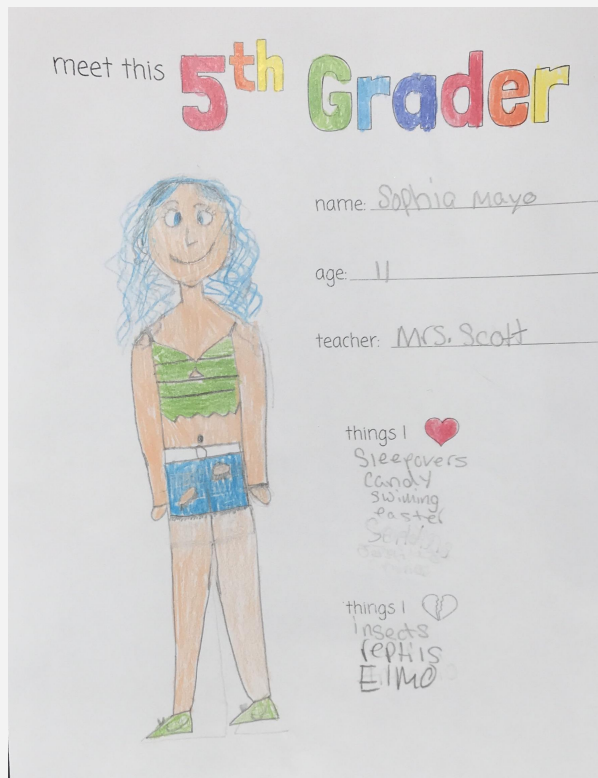 meet this 5th Grader
name: Sophia Mayo
age: 11
teacher: Mrs. Scott
things I
Sleepovers
Candy
swiming
easter
things I
insects
reptils
Elmo